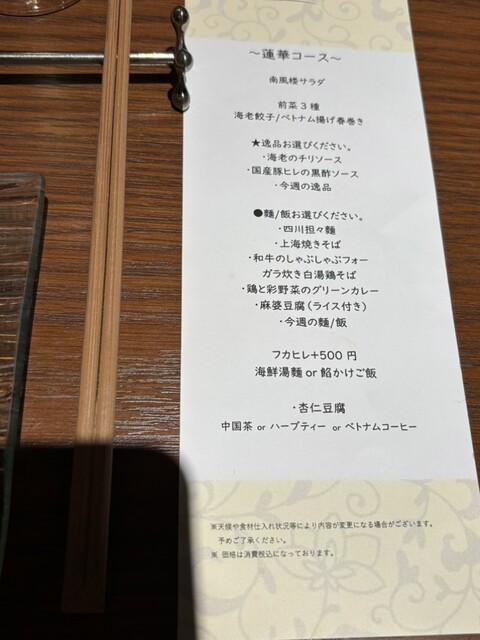 ～蓮華コース～
南風楼サラダ
前菜3種
海老餃子/ベトナム揚げ春巻き
★逸品お選びください。
・海老のチリソース
・国産豚ヒレの黒酢ソース
・今週の逸品
●麺/飯お選びください。
・四川担々麺
・上海焼きそば
・和牛のしゃぶしゃぶフォー
ガラ炊き白湯鶏そば
・鶏と彩野菜のグリーンカレー
・麻婆豆腐（ライス付き）
・今週の麺/飯
フカヒレ+500 円
海鮮湯麺 or 餡かけご飯
・杏仁豆腐
中国茶 or ハーブティー or ベトナムコーヒー
※天候や食材仕入れ状況等により内容が変更になる場合がございます。
予めご了承ください。
※ 価格は消費税込になっております。